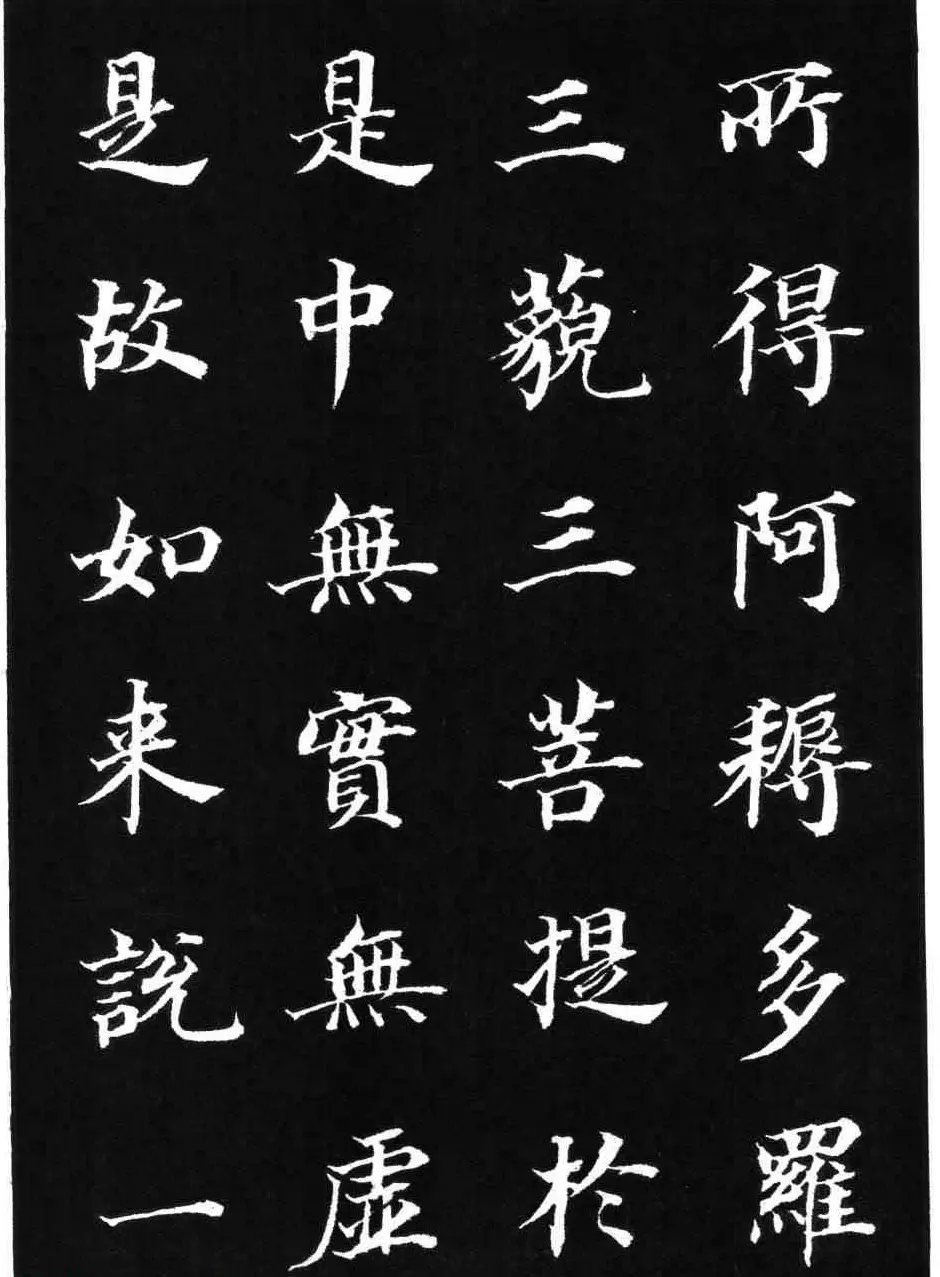 所得阿耨多羅
三藐三菩提於
是中無實無虛
是故如来說一